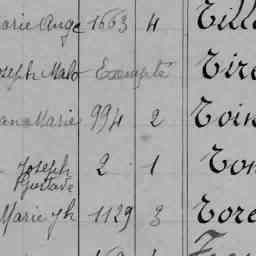 arie Ange 1663 4 Till
oseph Malo Exempté Tire
ana Marie 994 2 Toin
Joseph Gustave 2 1 Ton
Marie Jh 1129 3 Tore